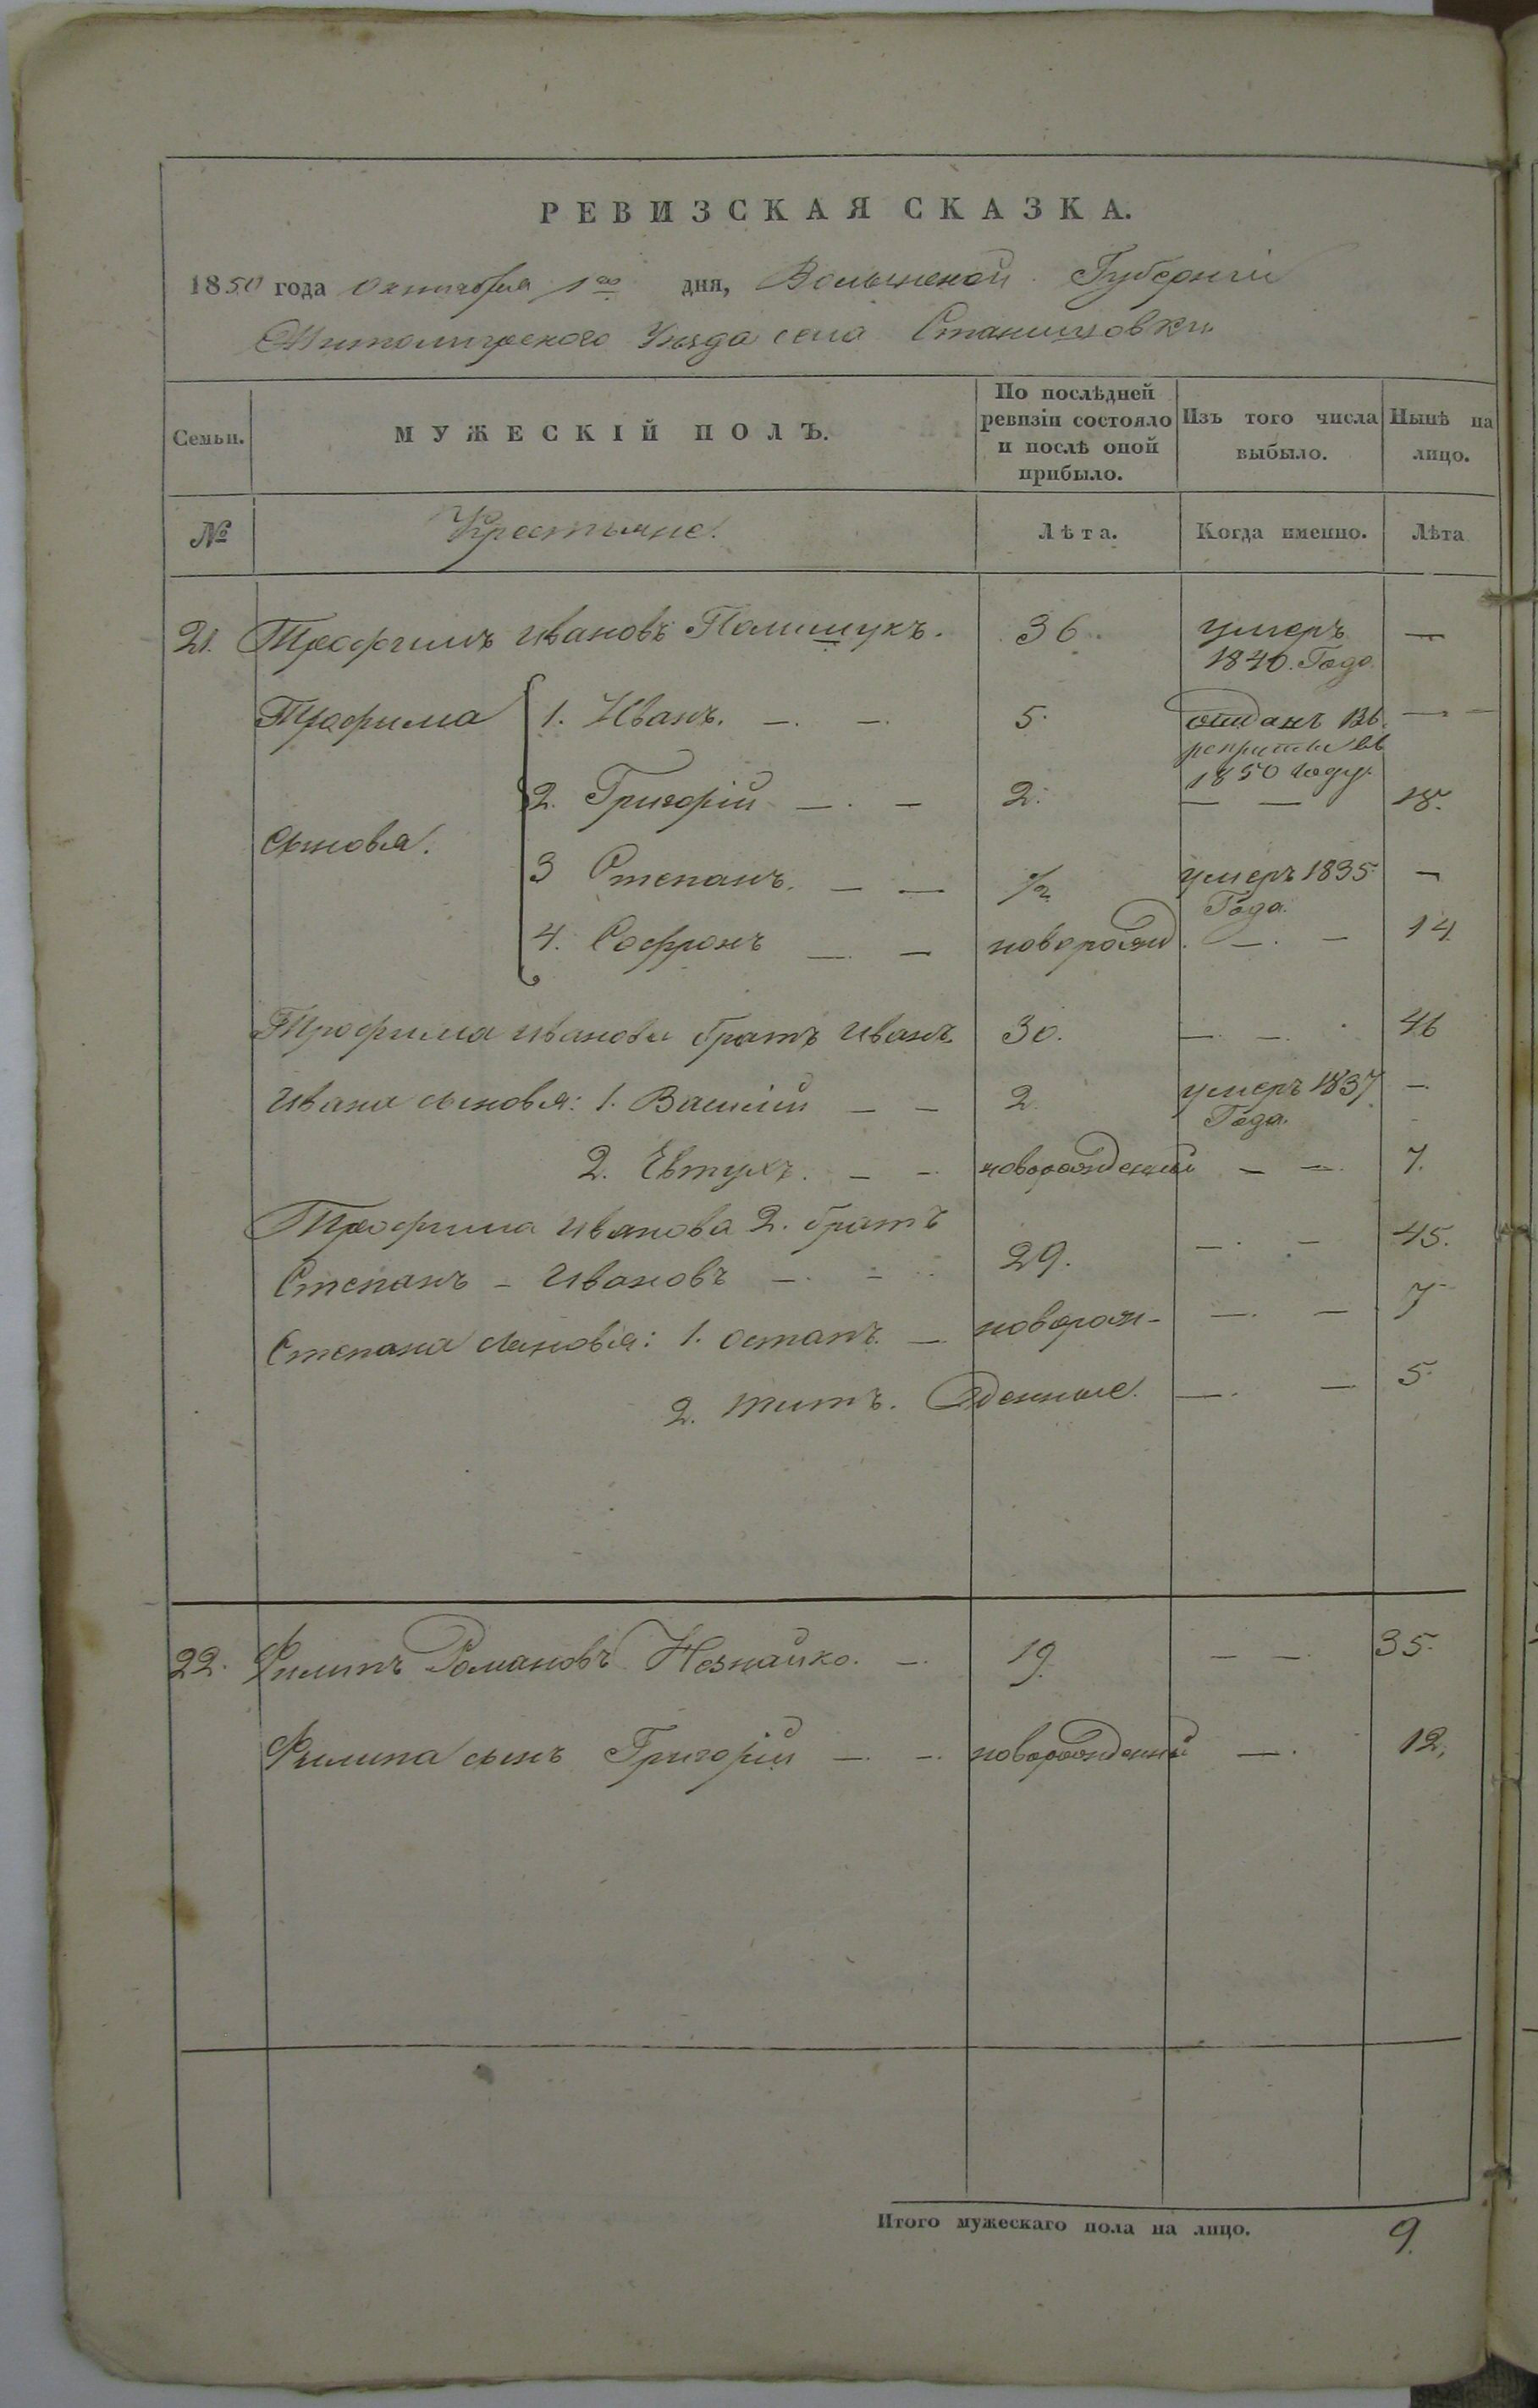 РЕВИЗСКАЯ СКАЗКА.
1850 года Октября 1го дня, Волынской Губерніи
Житомирского Уезда села Станишовки
Семьи. МУЖЕСКІЙ ПОЛЪ. По послѣдней ревизіи состояло и послѣ оной прибыло. Изъ того числа выбыло. Нынѣ на лицо.
№ Крестьяне. Лѣта. Когда именно. Лѣта
21. Трофимъ Ивановъ Полищукъ. 36. умеръ —
1840. Года.
Трофима 1. Иванъ. — — 5. отданъ въ — —
рекруты въ
1850 году.
2. Григорій — . — 2. — — 18.
Сыновья.
3 Степанъ. — — 1/2 умеръ 1835. —
Года.
4. Софронъ — — новорожд. — . — 14
Трофима Иванова братъ Иванъ 30. — — . 46
Ивана сыновья: 1. Василій — — 2. умеръ 1837 —.
Года.
2. Евтухъ. — — новорожденный — — 7.
Трофима Иванова 2. братъ
Степанъ - Ивановъ — . — 29. — . — 45.
Степана сыновья: 1. Остапъ. — новорож- — . — 7
2. Титъ. денные. — . — 5.
22. Филипъ Романовъ Незнайко. — . 19. — — . 35.
Филипа сынъ Григорій — . — . новорожденный — . 12.
Итого мужескаго пола на лицо. 9.